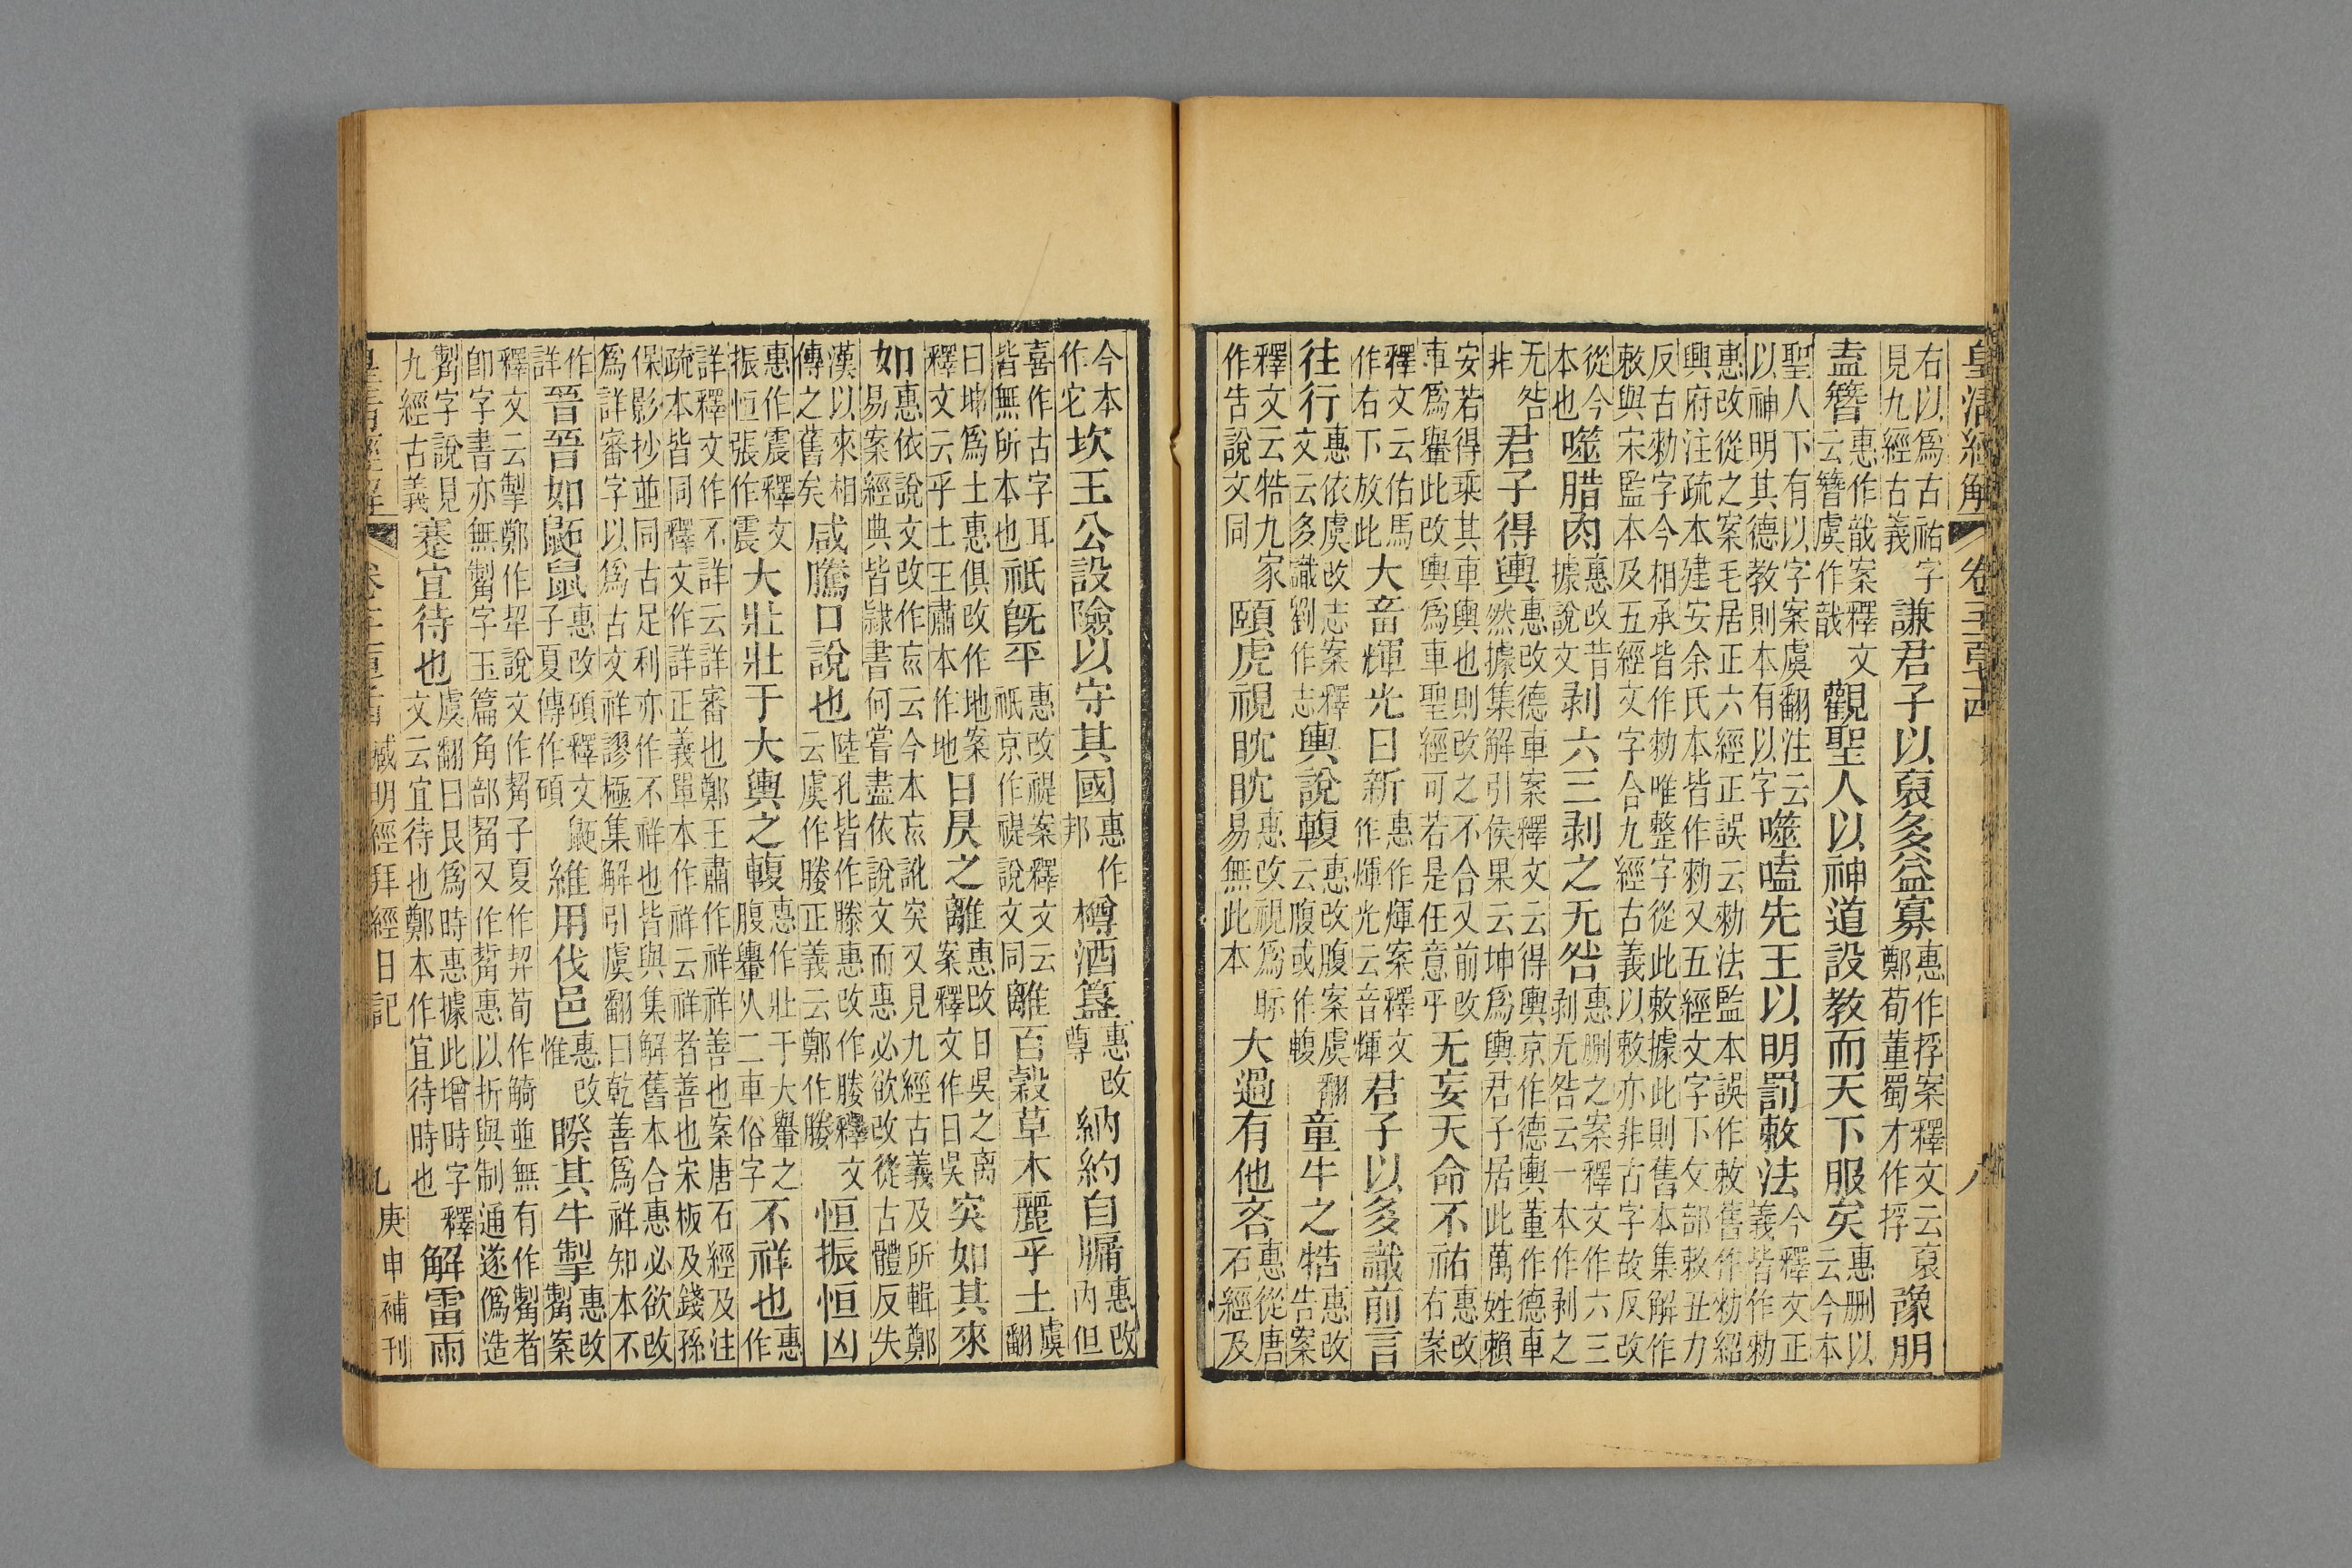 皇清經解 八
右以爲古祐字見九經古義謙君子以裒多益寡惠作捊案釋文云裒鄭荀董蜀才作捊豫朋
盍簪惠作戠案釋文云簪虞作戠觀聖人以神道設教而天下服矣惠刪以云今本
聖人下有以字案虞翻注云以神明其德教則本有以字噬嗑先王以明罰敕法今釋文正義皆作勑
惠改從之案毛居正六經正誤云勑法監本誤作敕舊作勑紹興府注疏本建安余氏本皆作勑又五經文字下攵部敕丑力
反古勑字今相承皆作勑唯整字從此敕據此則舊本集解作敕與宋監本及五經文字合九經古義以敕亦非古字故反改
從今本也噬腊肉惠改昔據說文剥六三剥之无咎惠刪之案釋文作六三剥无咎云一本作剥之
无咎非君子得輿惠改德車案釋文云得輿京作德輿董作德車然據集解引侯果云坤爲輿君子居此萬姓賴
安若得乗其車輿也則改之不合又前改車爲轝此改輿爲車聖經可若是任意乎无妄天命不祐惠改右案
釋文云佑馬作右下放此大畜輝光日新惠作煇案釋文作煇光云音輝君子以多識前言
往行惠依虞改志案釋文云多識劉作志輿說輹惠改腹案虞翻云腹或作輹童牛之牿惠改告案
釋文云牿九家作告說文同頤虎視眈眈惠改視爲眎易無此本大過有他吝惠從唐石經及
今本作它坎王公設險以守其國惠作邦樽酒簋惠改尊納約自牖惠改内但
喜作古字耳皆無所本也祇旣平惠改禔案釋文云祇京作禔說文同離百穀草木麗乎土虞翻
曰坤爲土惠俱改作地案釋文云乎土王肅本作地日昃之離惠改日吳之离案釋文作日吳突如其來
如惠依說文改作𠫓云今本𠫓訛突又見九經古義及所輯鄭易案經典皆隸書何嘗盡依說文而惠必欲改從古體反失
漢以來相傳之舊矣咸騰口說也陸孔皆作滕惠改作媵釋文云虞作媵正義云鄭作媵恒振恒凶
惠作震釋文振恒張作震大壯壯于大輿之輹惠作壯于大轝之腹轝乆二車俗字不祥也惠作
詳釋文作不詳云詳審也鄭王肅作祥祥善也案唐石經及注疏本皆同釋文作詳正義單本作祥云祥者善也宋板及錢孫
保影抄並同古足利亦作不祥也皆與集解舊本合惠必欲改爲詳審字以爲古文祥謬極集解引虞翻曰乾善爲祥知本不
作詳晉晉如鼫鼠惠改碩釋文鼫子夏傳作碩維用伐邑惠改惟睽其牛掣惠改觢案
釋文云掣鄭作說文作觢子夏作挈荀作觭並無有作者卽字書亦無字玉篇角部觢又作惠以折與制通遂僞造
字說見九經古義蹇宜待也虞翻曰艮爲時惠據此增時字釋文云宜待也鄭本作宜待時也解雷雨
皇清經解 臧明經拜經日記 九 庚申補刊